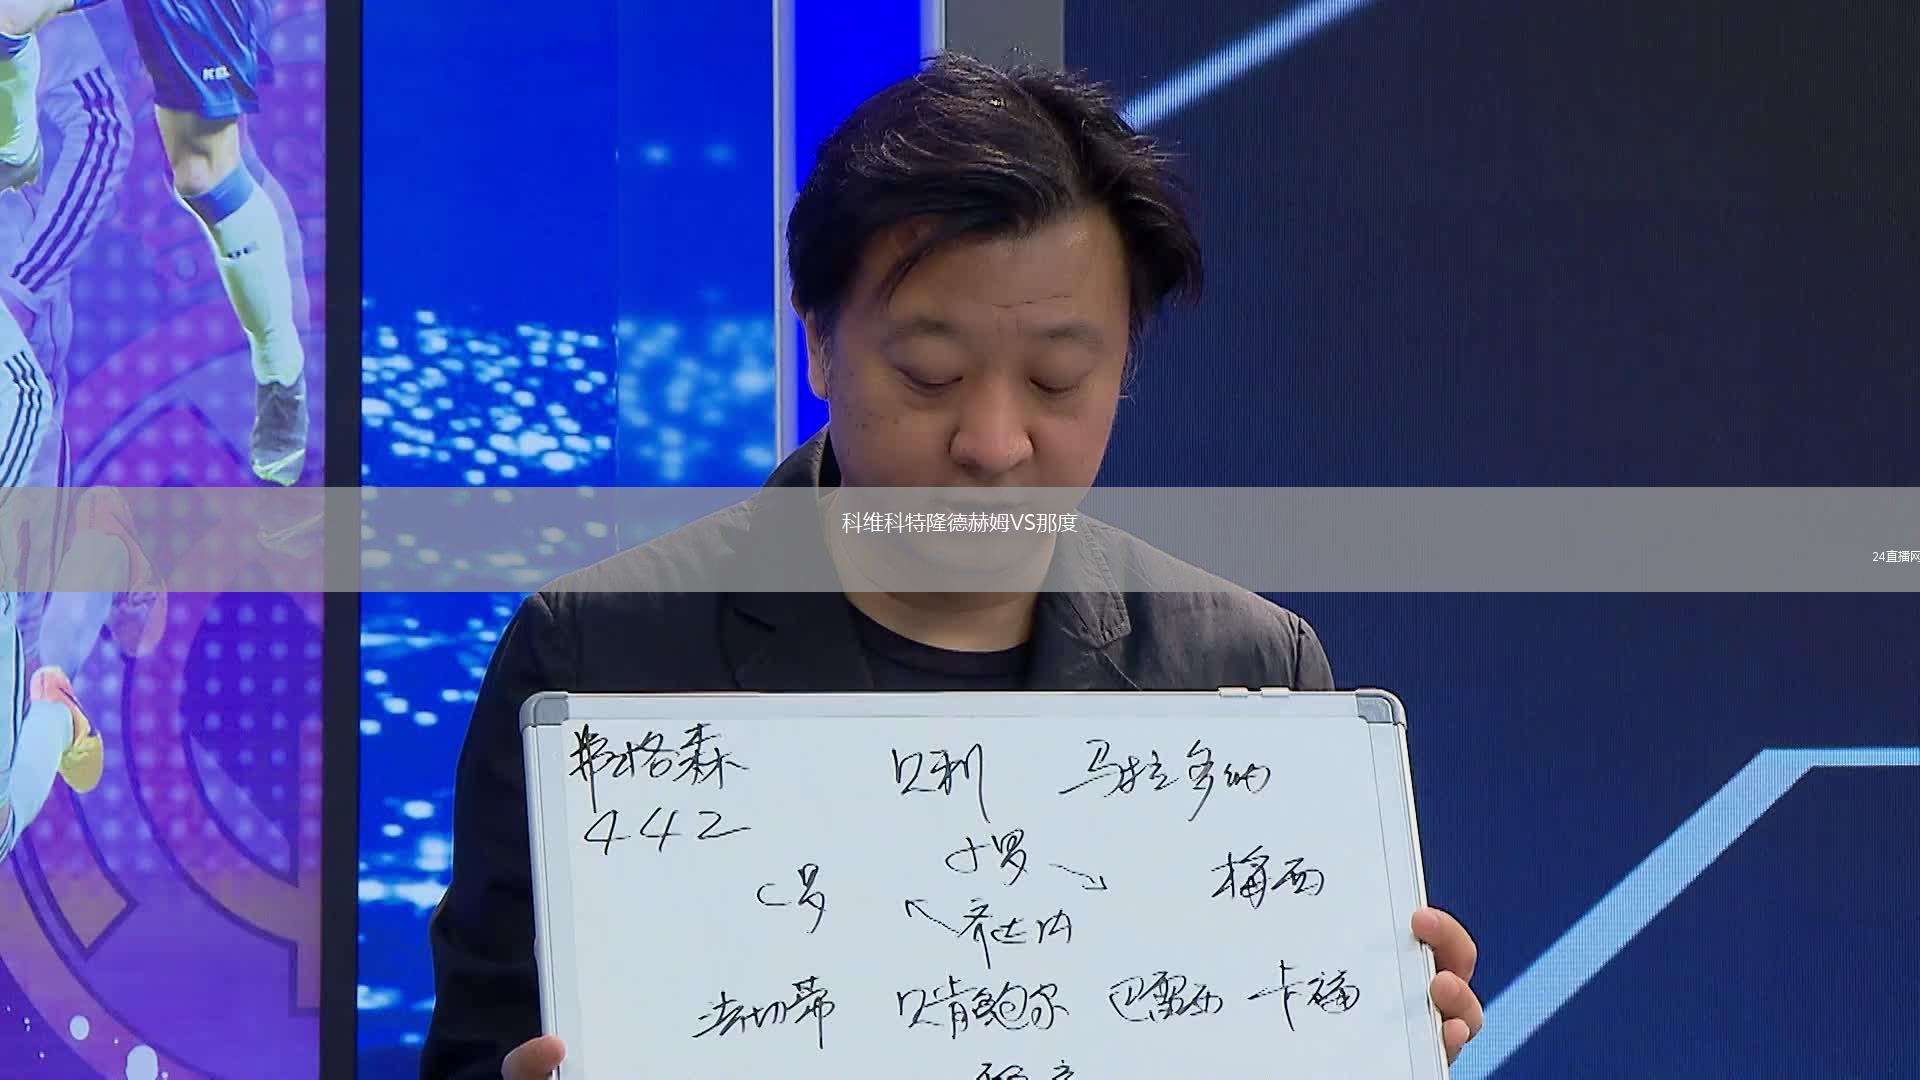 科维科特隆德赫姆VS那度
24直播网
弗格森 贝利 马拉多纳
442
C罗 小罗 梅西
齐达内
法切蒂 贝肯鲍尔 巴雷西 卡福